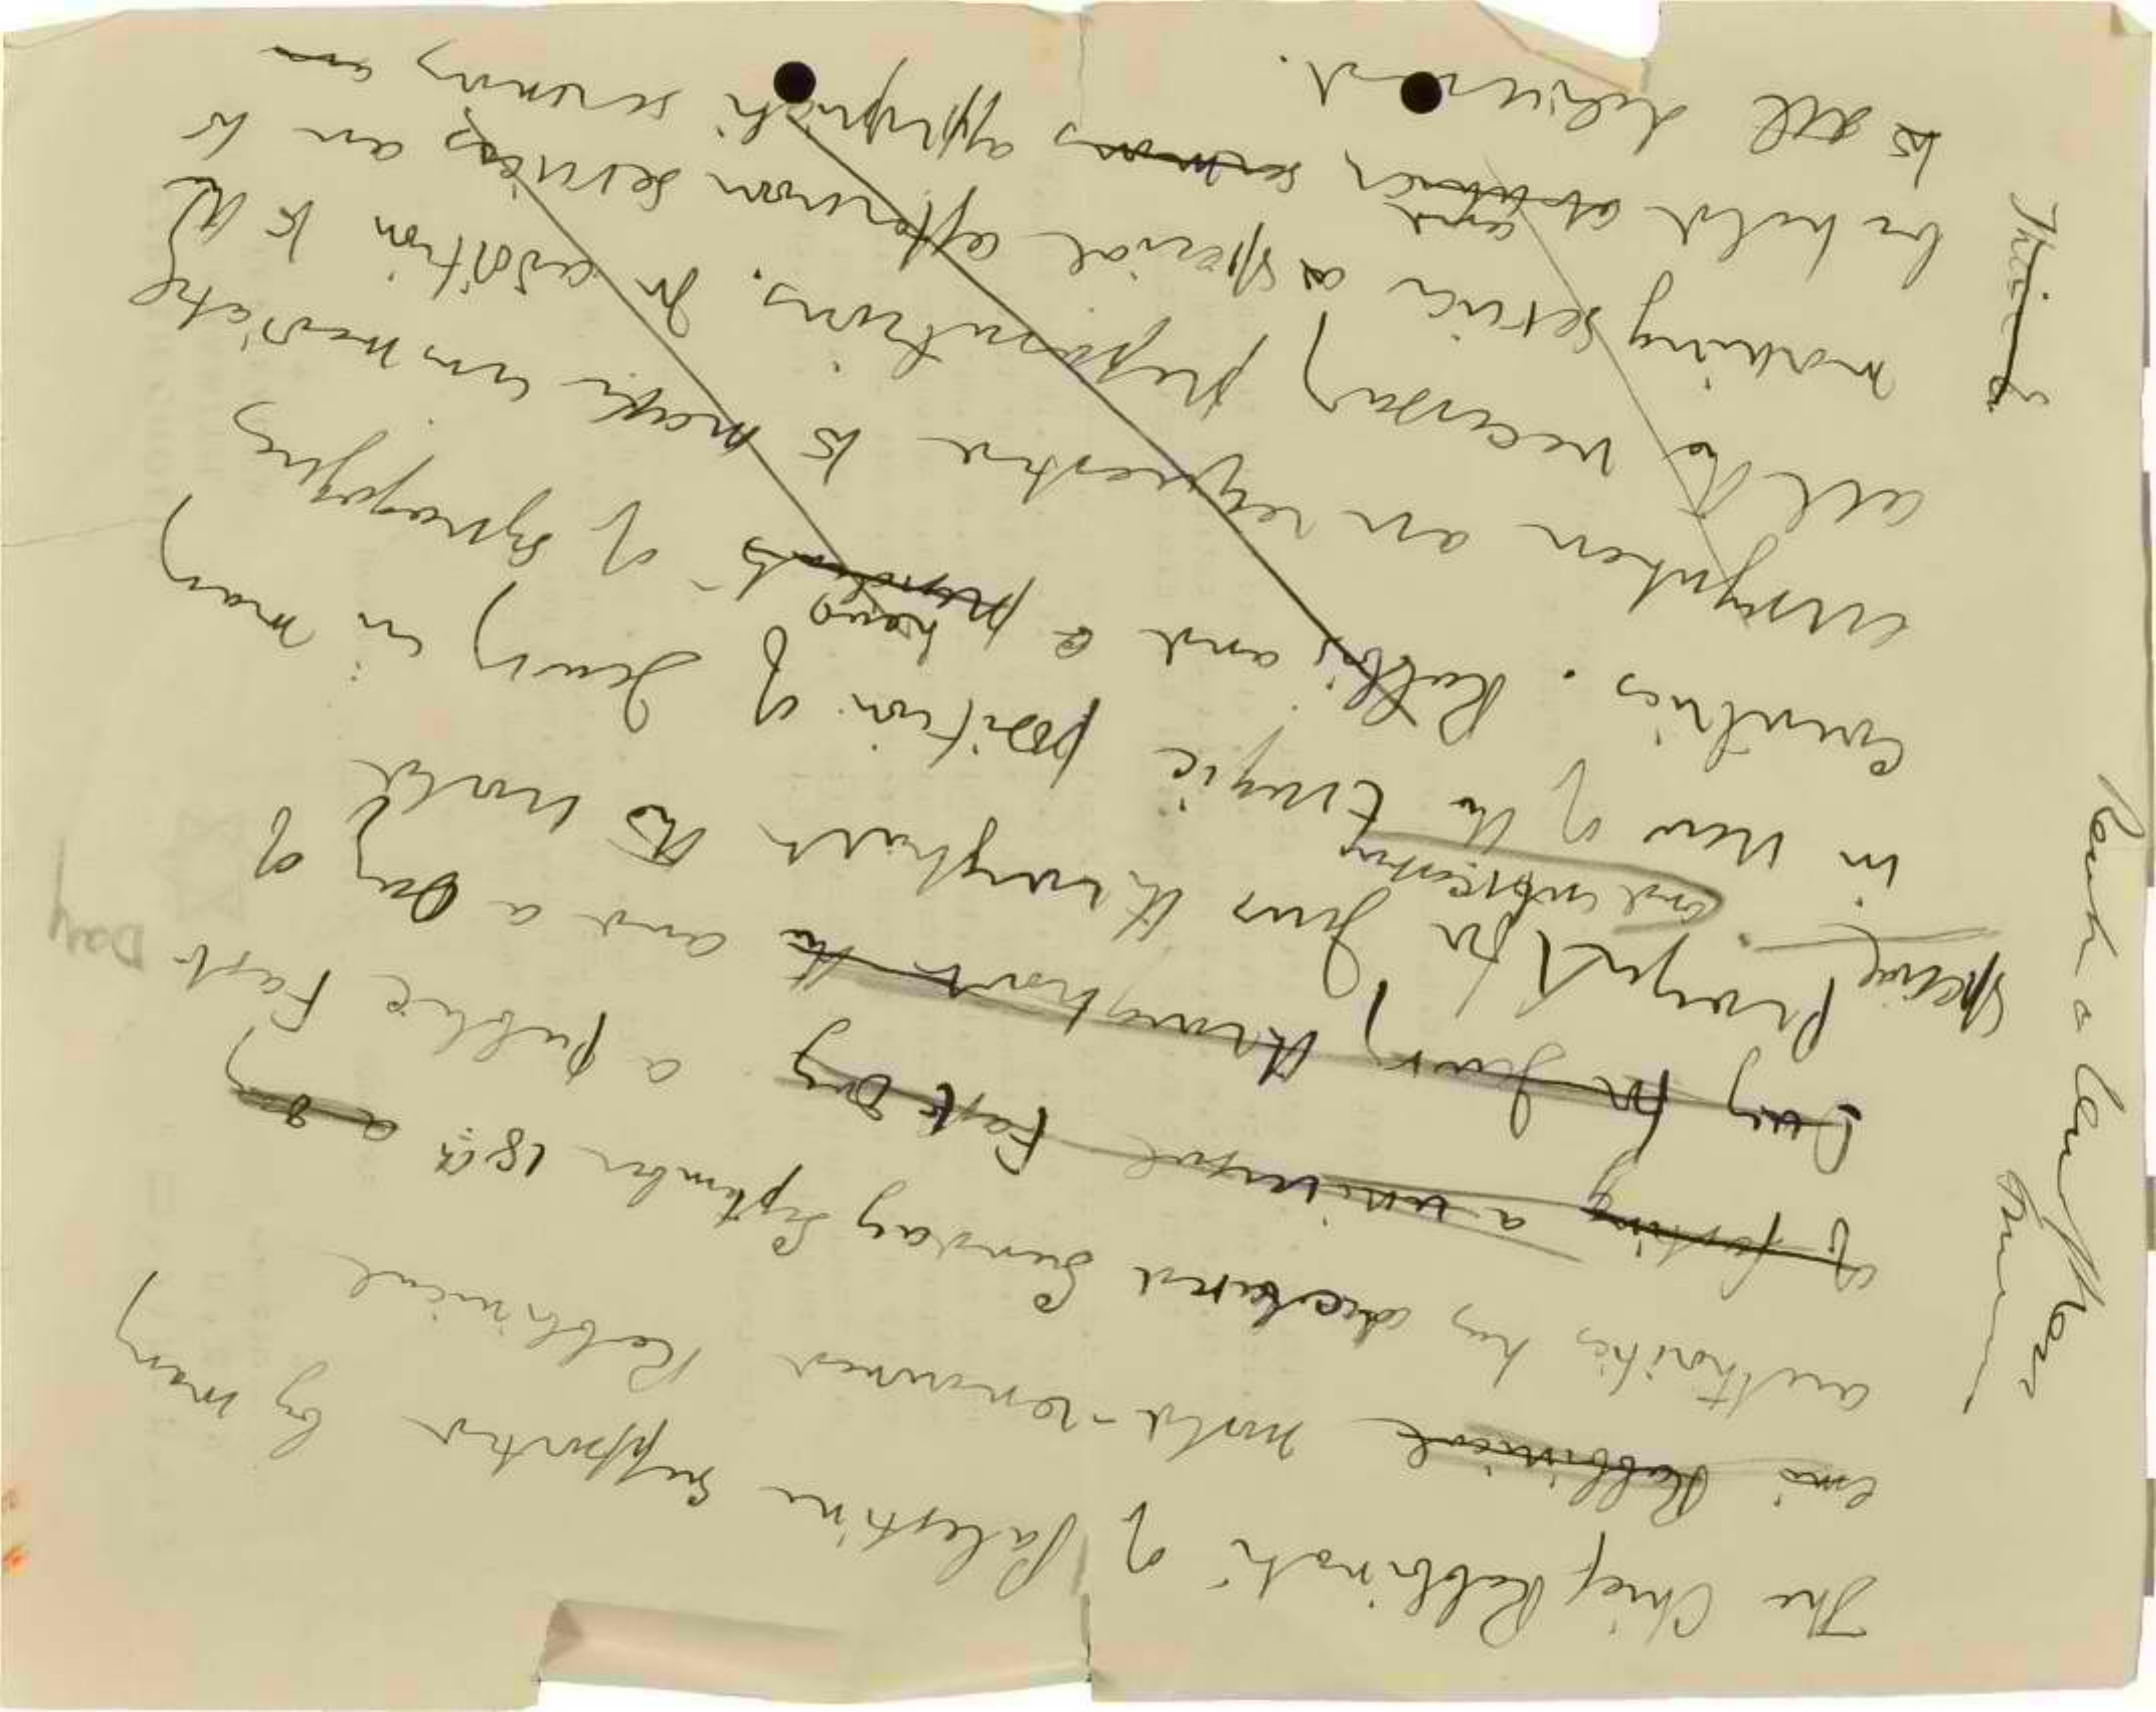 The Chief Rabbinate of Palestine supported by many
emi Rabbinical world-renowned Rabbinical
authorities has declared Sunday September 18th as a
of fasting a universal Fast Day a public Fast
Day for Jewry throughout the and a Day of
special Prayer for Jews throughout the world
and intercession
in view of the tragic position of Jewry in many
countries. Rabbis and heads of Synagogues
everywhere are requested to make immediate
all the necessary preparations. In addition to the
morning service a special afternoon services are to
be held and appropriate sermons
to be delivered.
This is
Day